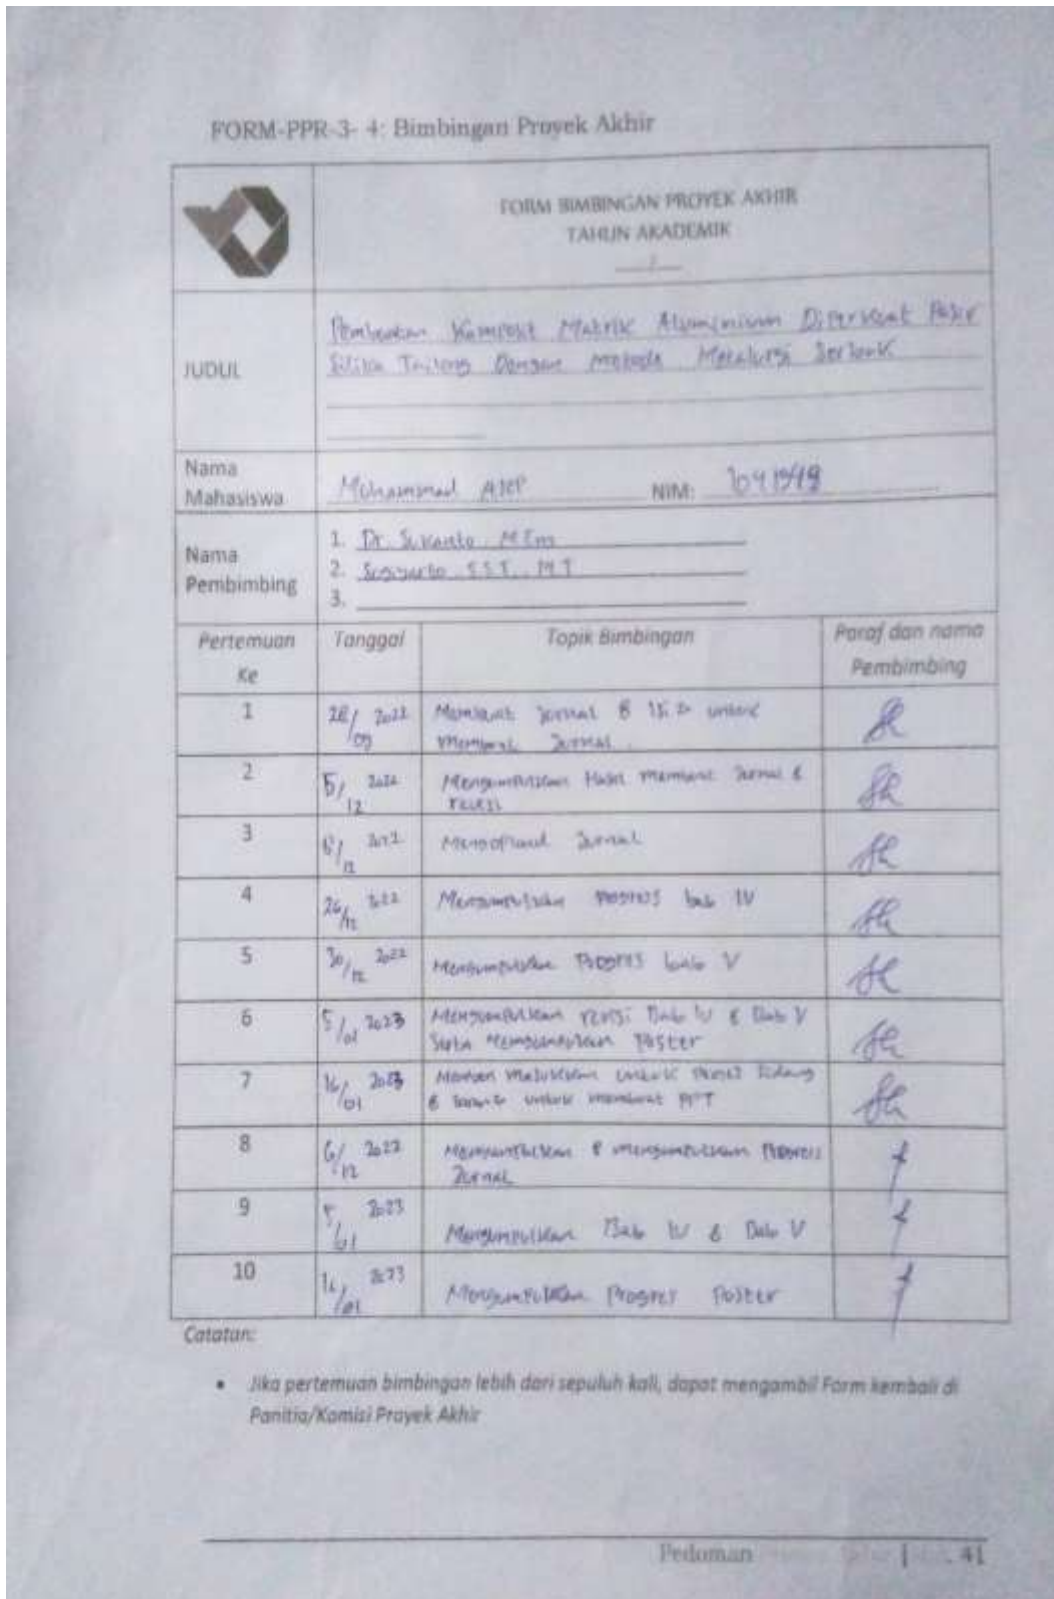 FORM-PPR-3- 4: Bimbingan Proyek Akhir
FORM BIMBINGAN PROYEK AKHIR
TAHUN AKADEMIK
JUDUL
Pembuatan Komposit Matrik Aluminium Diperkuat Pasir
Silika Tailing Dengan Metode Metalurgi Serbuk
Nama
Mahasiswa
Muhammad NIM:
Nama
Pembimbing
1. Dr. Sukanto M.Eng
2. Sugiyarto SST. MT
3.
Pertemuan
Ke
Tanggal
Topik Bimbingan
Paraf dan nama
Pembimbing
1 28/09 2022 Jurnal & untuk
membuat Jurnal
2 5/12 2022 Mengumpulkan Hasil membuat Jurnal &
revisi
3 /12 2022 Jurnal
4 26/12 2022 Mengumpulkan progres bab IV
5 30/12 2022 Mengumpulkan Progres bab V
6 5/01 2023 Mengumpulkan revisi Bab IV & Bab V
Serta Mengumpulkan Poster
7 16/01 2023 untuk Sidang
& untuk membuat PPT
8 6/12 2022 & mengumpulkan Progres
Jurnal
9 5/01 2023 Mengumpulkan Bab IV & Bab V
10 16/01 2023 Mengumpulkan Progres Poster
Catatan:
• Jika pertemuan bimbingan lebih dari sepuluh kali, dapat mengambil Form kembali di
Panitia/Komisi Proyek Akhir
Pedoman | 41